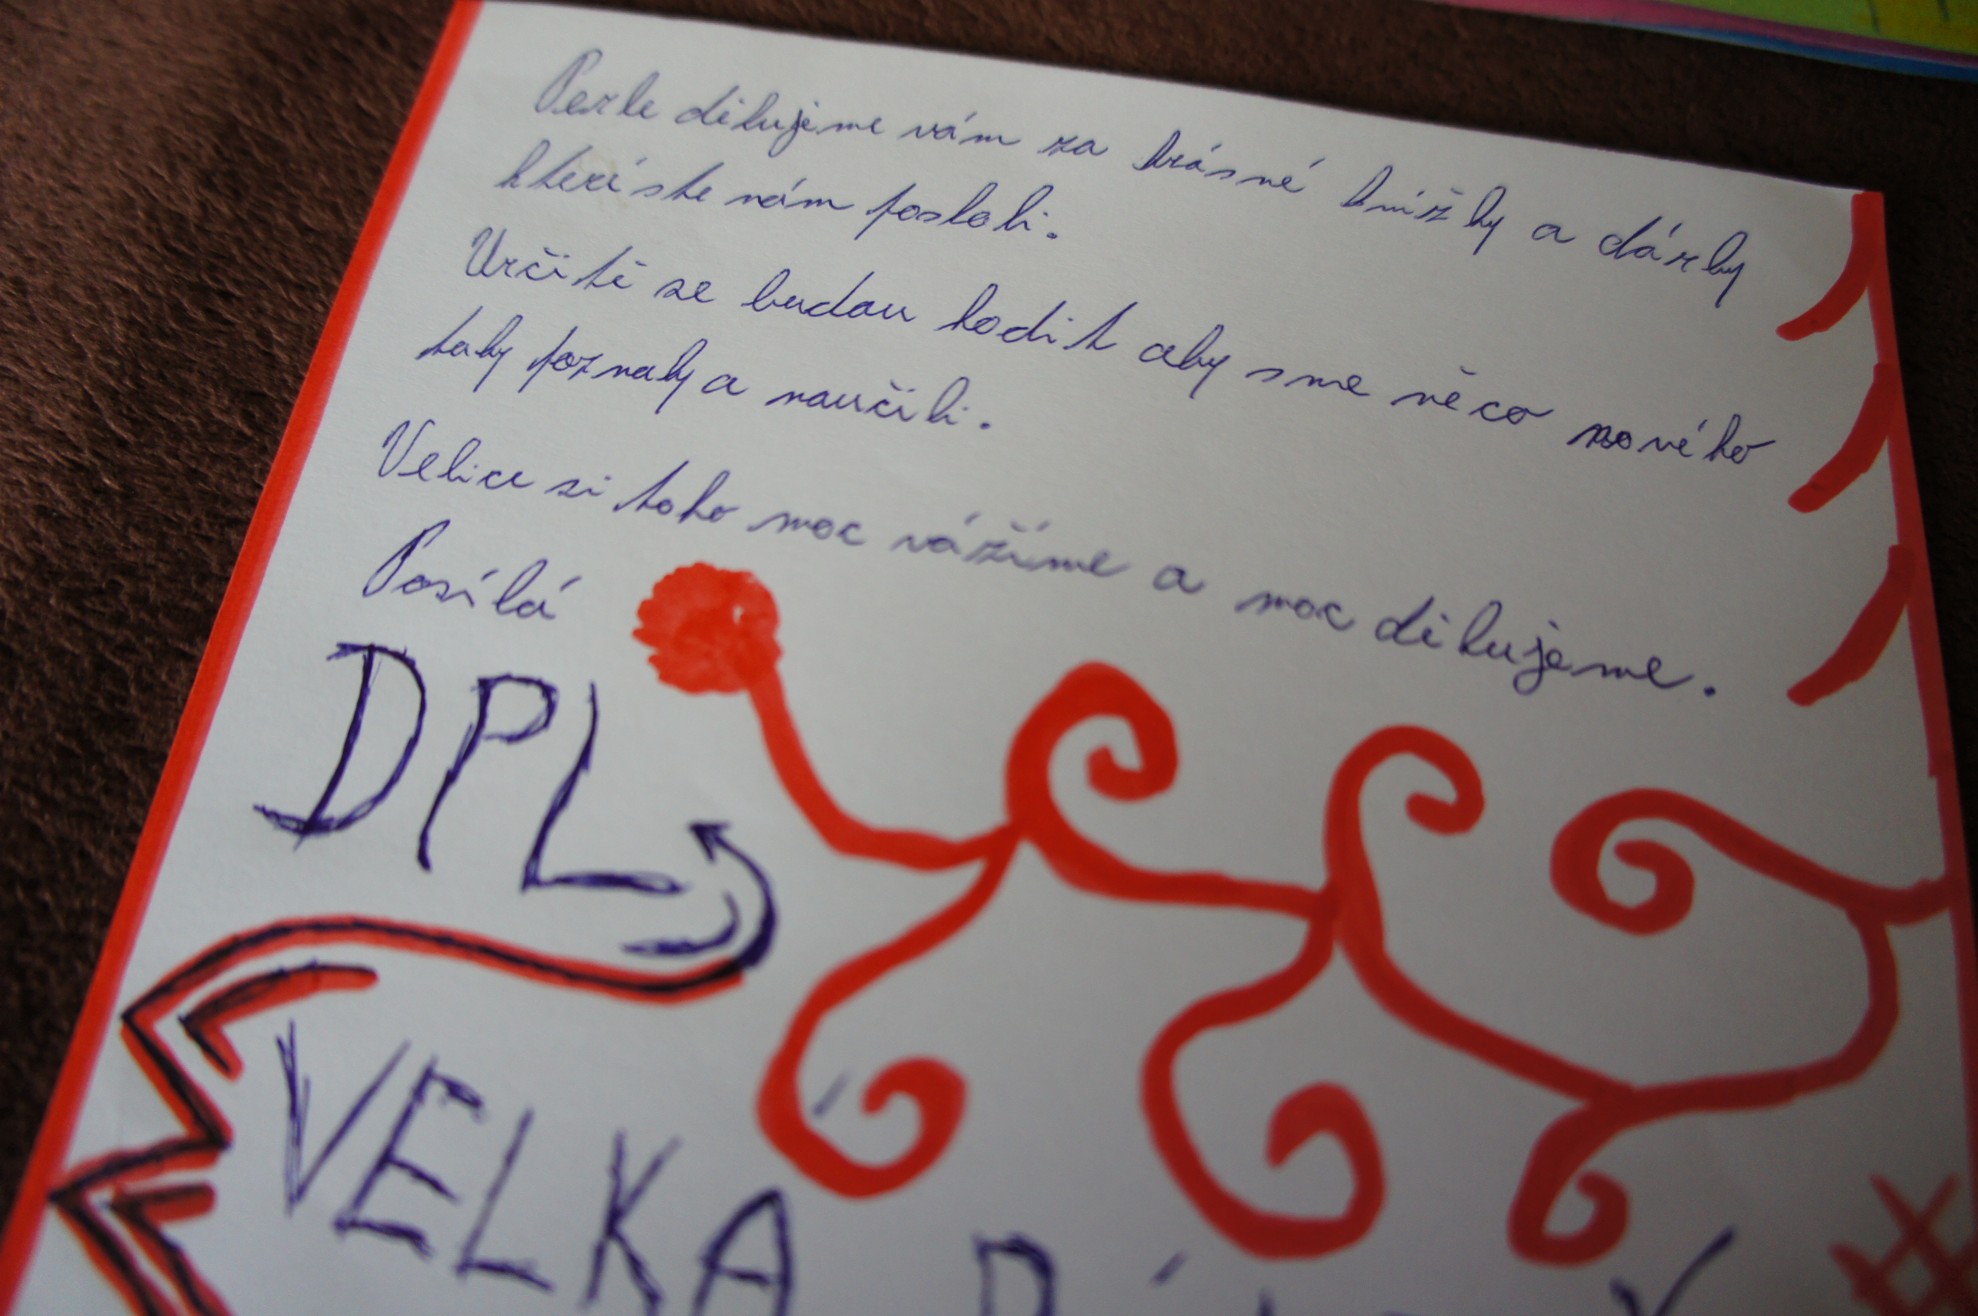 Pezke děkujeme vám za krásné knížky a dárky
kteri ste nám poslali.
Určitě se budou hodit aby sme něco nového
taky poznaly a naučili.
Velice si toho moc vážíme a moc děkujeme.
Posílá
DPL
VELKA